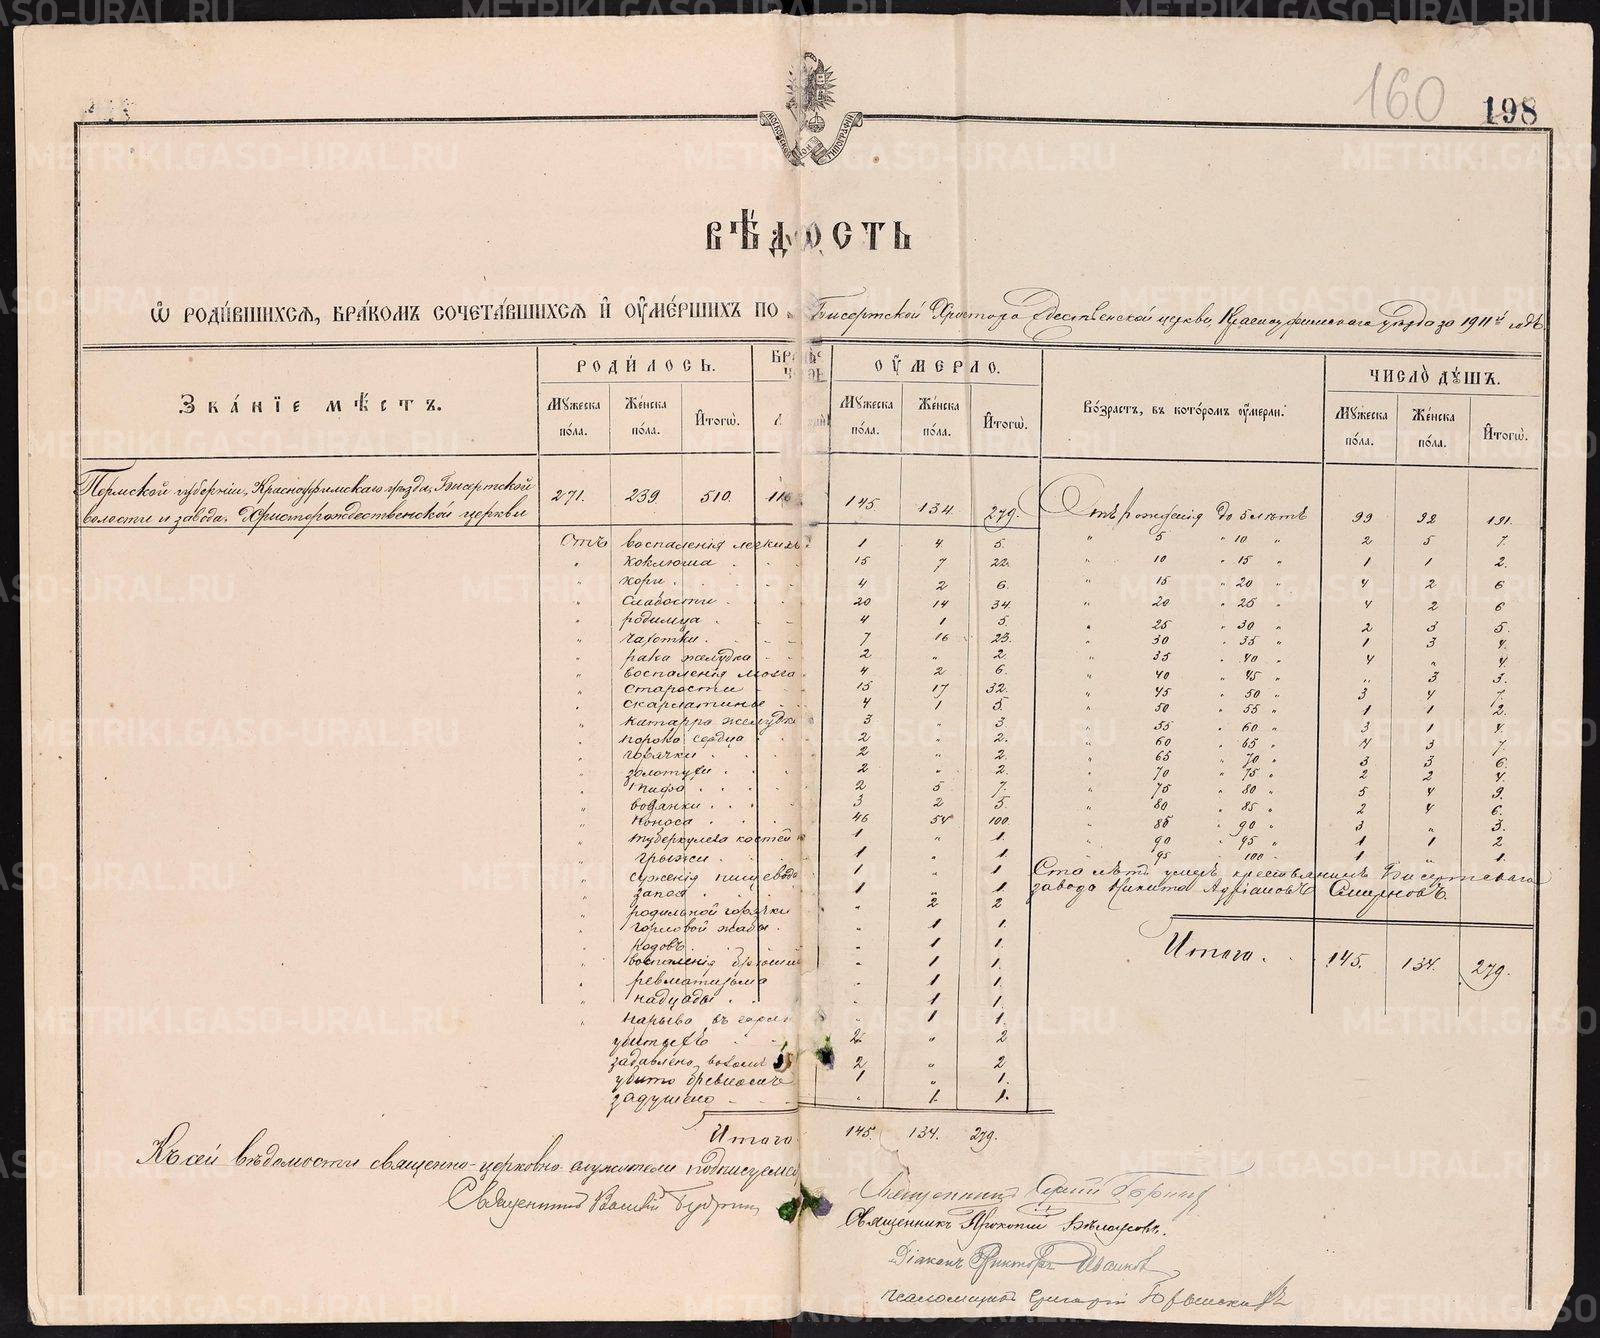 160
198
МОСКОВСКОЙ СѴНОД. ТИПОГРАФІИ
ВѢДОСТЬ
Ѿ РОДИВШИХСѦ, БРАКОМЪ СОЧЕТАВШИХСѦ И ОУМЕРШИХЪ ПО Бисертской Христорождественской церкви, Красноуфимскаго уѣзда за 1911й годъ
РОДИЛОСЬ. ОУМЕРЛО. ЧИСЛО ДУШЪ.
ЗВАНІЕ МѢСТЪ. Мужеска пола. Женска пола. Итогѡ. Мужеска пола. Женска пола. Итогѡ. Возрастъ, въ которомъ оумерли. Мужеска пола. Женска пола. Итогѡ.
Пермской губерніи, Красноуфимскаго уѣзда, Бисертской
волости и завода, Христорождественской церкви 271. 239 510. 116 145. 134. 279. Отъ рожденія до 5 лѣтъ 99 92 191.
Отъ воспаленія легкихъ 1 4. 5. " 5 " 10 " 2 5 7.
" коклюша 15 7 22. " 10 " 15 " 1 1 2.
" кори 4 2 6. " 15 " 20 " 4 2 6
" слабости 20 14 34. " 20 " 25 " 4 2 6
" родимца 4 1 5. " 25 " 30 " 2 3 5.
" чахотки 7 16 23. " 30 " 35 " 1 3 4.
" рака желудка 2 " 2. " 35 " 40 " 4 " 4.
" воспаленія мозга 4 2 6. " 40 " 45 " " 3 3.
" старости 15 17 32. " 45 " 50 " 3 4 7.
" скарлатины 4 1 5. " 50 " 55 " 1 1 2.
" катарра желудка 3 " 3. " 55 " 60 " 3 1 4.
" порока сердца 2 " 2. " 60 " 65 " 4 3 7.
" горячки 2 " 2. " 65 " 70 " 3 3 6.
" золотухи 2 " 2. " 70 " 75 " 2 2 4.
" тифа 2 5 7. " 75 " 80 " 5 4 9.
" водянки 3 2 5. " 80 " 85 " 2 4 6.
" поноса 46 54 100. " 85 " 90 " 3 " 3.
" туберкулеза костей 1 " 1. " 90 " 95 " 1 1 2
" грыжи 1 " 1. " 95 " 100 1 " 1.
" суженія пищевода 1 " 1. Ста лѣтъ умеръ крестьянинъ Бисертскаго
" запоя 1 " 1. завода Никита Адріановъ Смирновъ.
" родильной горячки " 2 2
" горловой жабы " 1 1.
" родовъ " 1 1. Итого. 145. 134. 279.
" воспаленія брюшины " 1 1.
" ревматизма " 1 1.
" надсады " 1 1.
" нарыва въ горлѣ " 1 1.
убитыхъ 2 " 2
задавлено возомъ 2 " 2
убито бревномъ 1 " 1.
задушено " 1. 1.
Итого 145. 134. 279.
Къ сей вѣдомости священно-церковно-служители подписуемся
Священникъ Василій
Священникъ Сергій
Священникъ Прокопій Бѣлоусовъ.
Діаконъ Викторъ Ивановъ
Псаломщикъ Григорій
METRIKI.GASO-URAL.RU